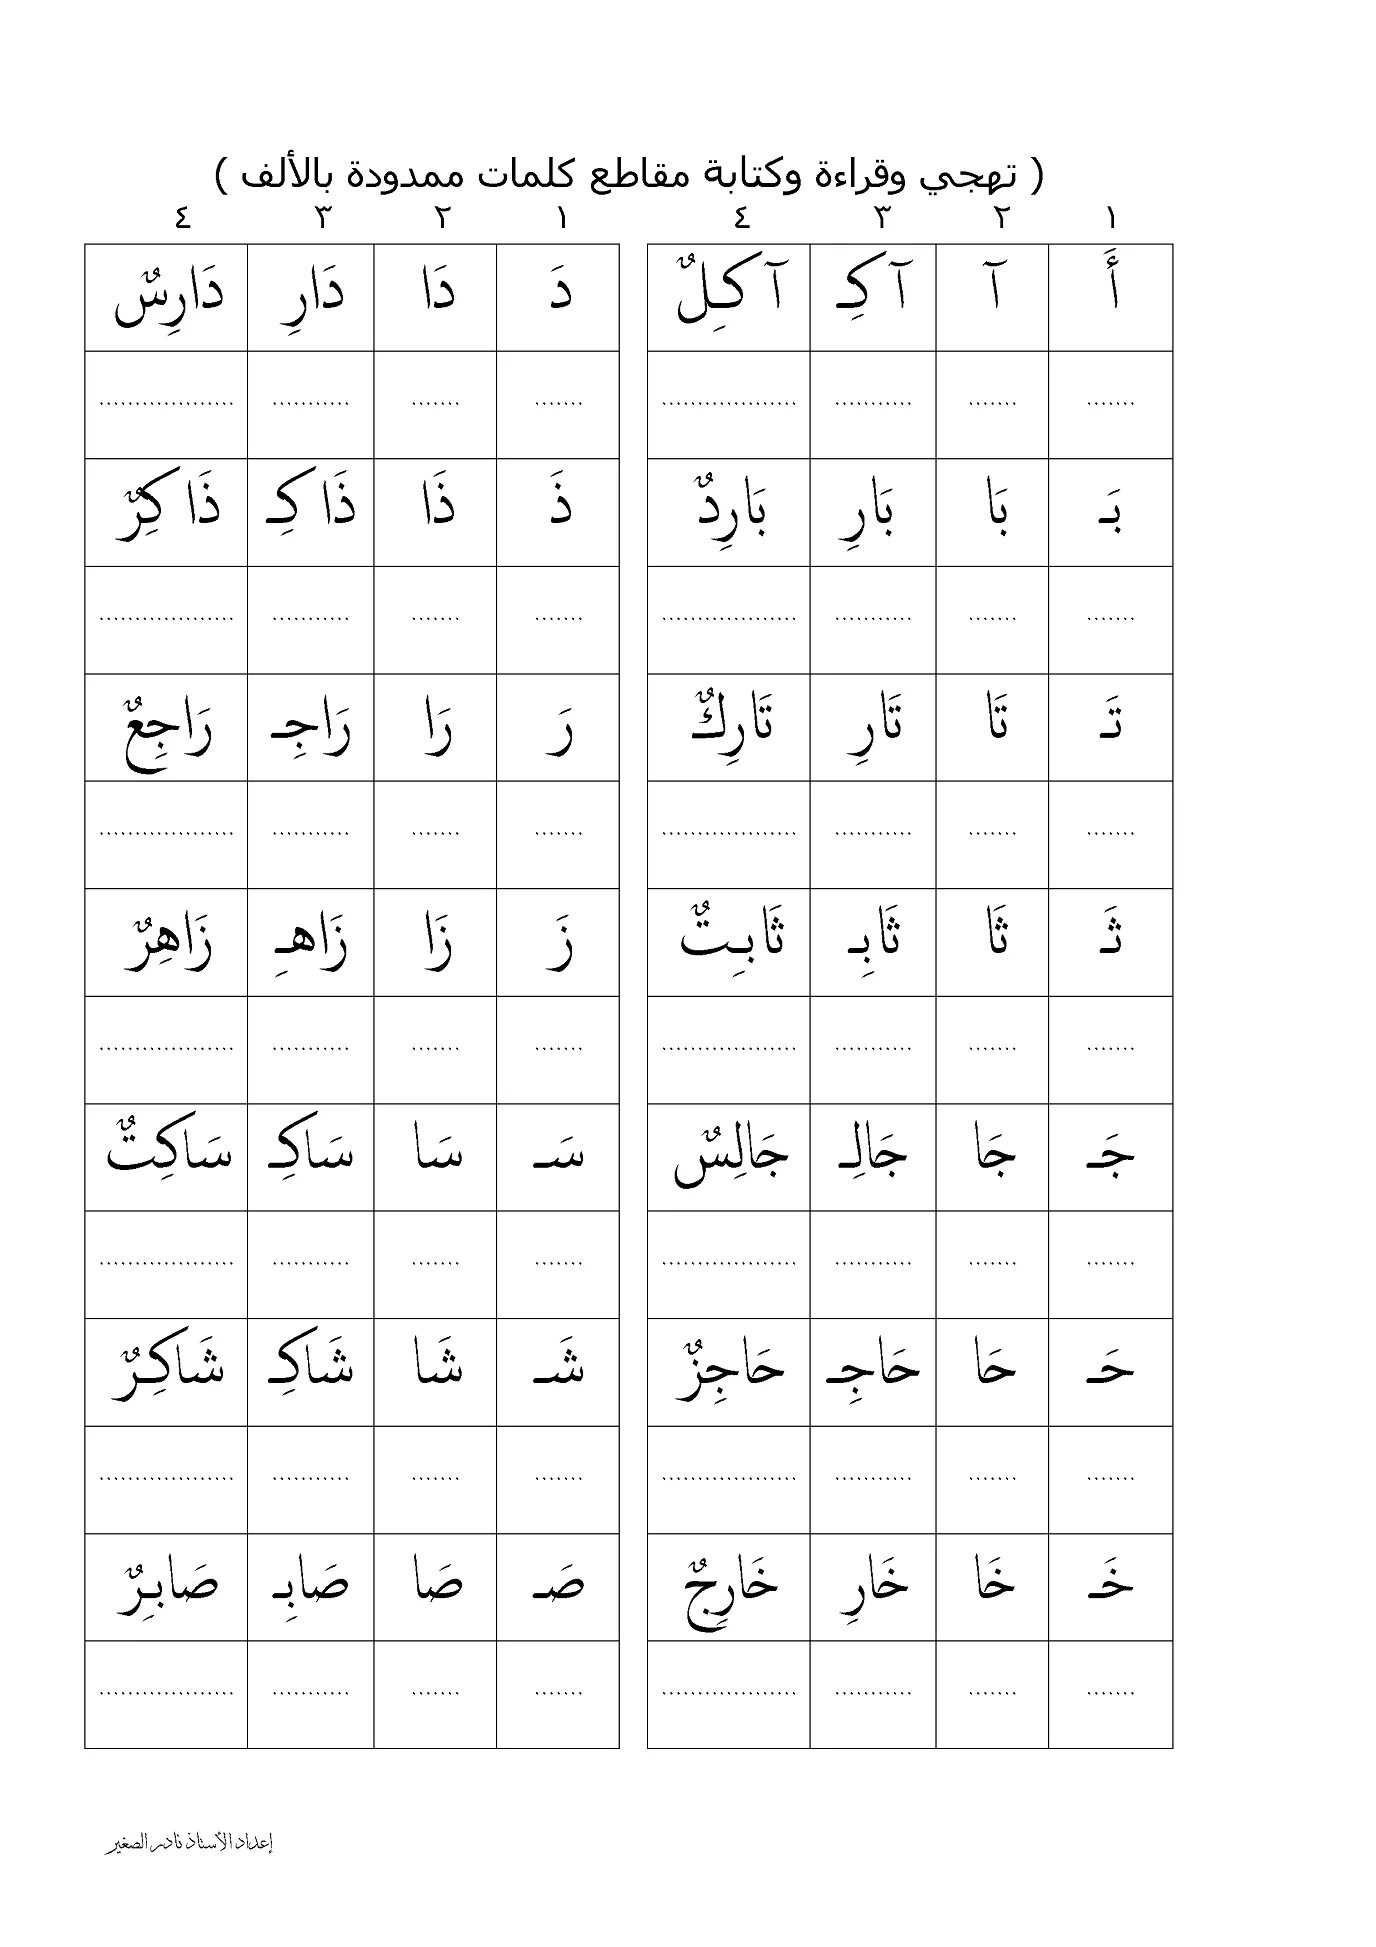 ( تهجي وقراءة وكتابة مقاطع كلمات ممدودة بالألف )
١ ٢ ٣ ٤ ١ ٢ ٣ ٤
أَ آ آكِـ آكِلٌ دَ دَا دَارِ دَارِسٌ
....... ....... ........... ................... ....... ....... ........... ...................
بَـ بَا بَارِ بَارِدٌ ذَ ذَا ذَاكِـ ذَاكِرٌ
....... ....... ........... ................... ....... ....... ........... ...................
تَـ تَا تَارِ تَارِكٌ رَ رَا رَاجِـ رَاجِعٌ
....... ....... ........... ................... ....... ....... ........... ...................
ثَـ ثَا ثَابِـ ثَابِتٌ زَ زَا زَاهِـ زَاهِرٌ
....... ....... ........... ................... ....... ....... ........... ...................
جَـ جَا جَالِـ جَالِسٌ سَـ سَا سَاكِـ سَاكِتٌ
....... ....... ........... ................... ....... ....... ........... ...................
حَـ حَا حَاجِـ حَاجِزٌ شَـ شَا شَاكِـ شَاكِرٌ
....... ....... ........... ................... ....... ....... ........... ...................
خَـ خَا خَارِ خَارِجٌ صَـ صَا صَابِـ صَابِرٌ
....... ....... ........... ................... ....... ....... ........... ...................
إعداد الأستاذ نادر الصغير